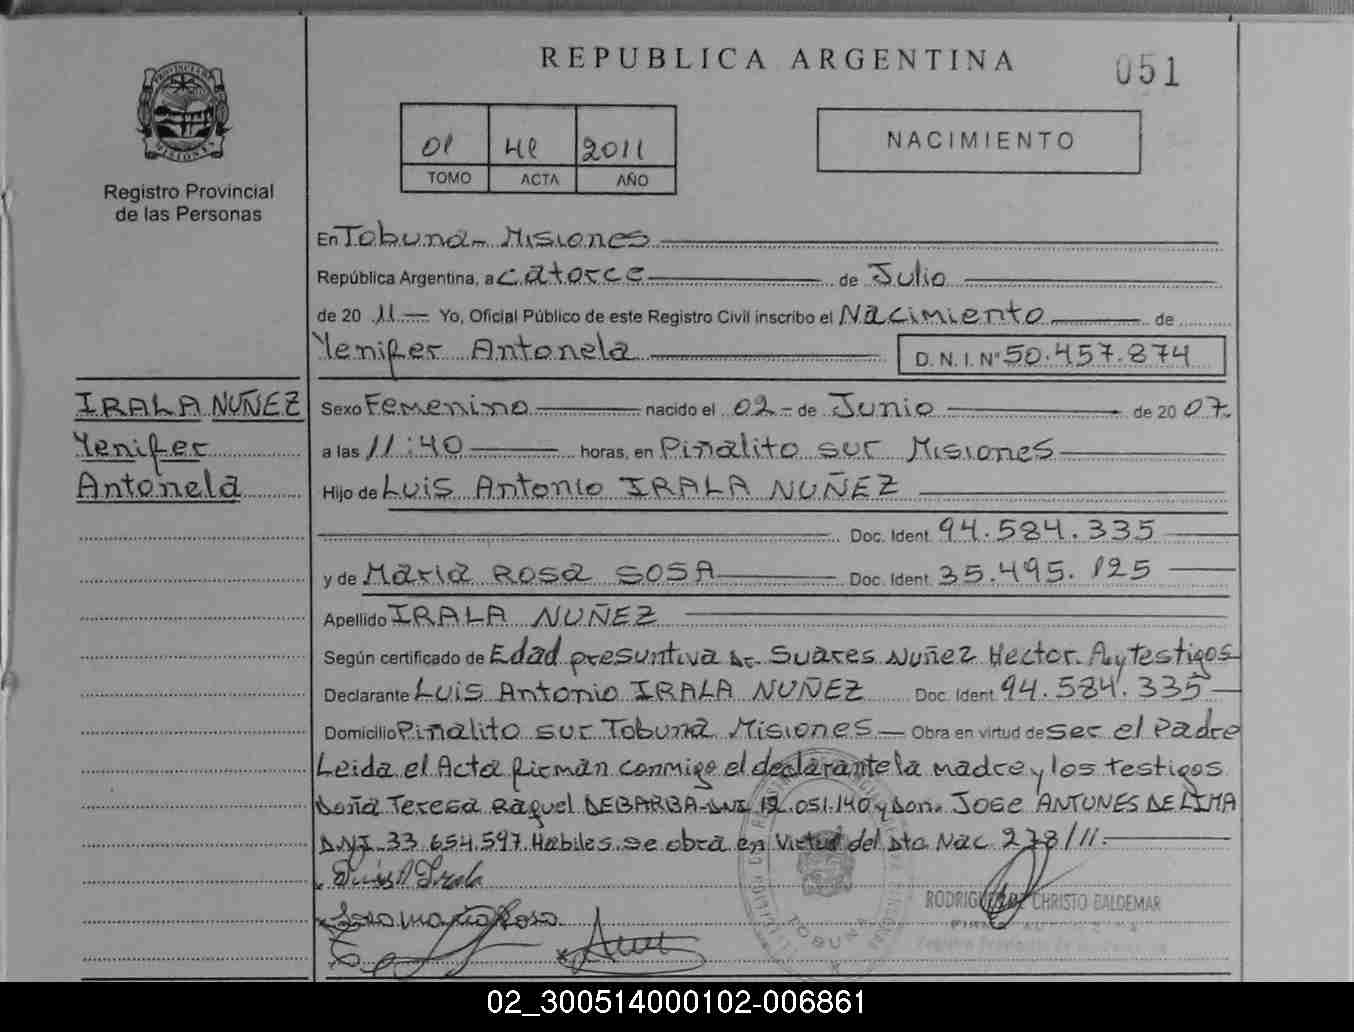 REPUBLICA ARGENTINA
051
PROVINCIA DE
MISIONES
Registro Provincial
de las Personas
01 41 2011
TOMO ACTA AÑO
NACIMIENTO
En Tobuna - Misiones
República Argentina, a catorce de Julio
de 20 11 Yo, Oficial Público de este Registro Civil inscribo el Nacimiento de
Yenifer Antonela D. N. I. Nº 50.457.874
IRALA NUÑEZ
Yenifer
Antonela
Sexo Femenino nacido el 02 - de Junio de 20 07.
a las 11:40 horas, en Piñalito sur Misiones
Hijo de Luis Antonio IRALA NUÑEZ
Doc. Ident. 94.584.335
y de Maria ROSA SOSA Doc. Ident. 35.495.125
Apellido IRALA NUÑEZ
Según certificado de Edad presuntiva Dr. Suares Nuñez Hector. A y testigos
Declarante Luis Antonio IRALA NUÑEZ Doc. Ident. 94.584.335
Domicilio Piñalito sur Tobuna Misiones - Obra en virtud de ser el Padre
Leida el Acta firman conmigo el declarante la madre y los testigos
Doña Teresa Raquel DEBARBA - DNI 12.051.140 y Don. JOSE ANTUNES DE LIMA
D.N.I. 33.654.597 Habiles. se obra en Virtud del Dto Nac 278/11.
Luis A Irala
Sosa Maria Rosa
TOBUNA
RODRIGUEZ DE CHRISTO BALDEMAR
02_300514000102-006861